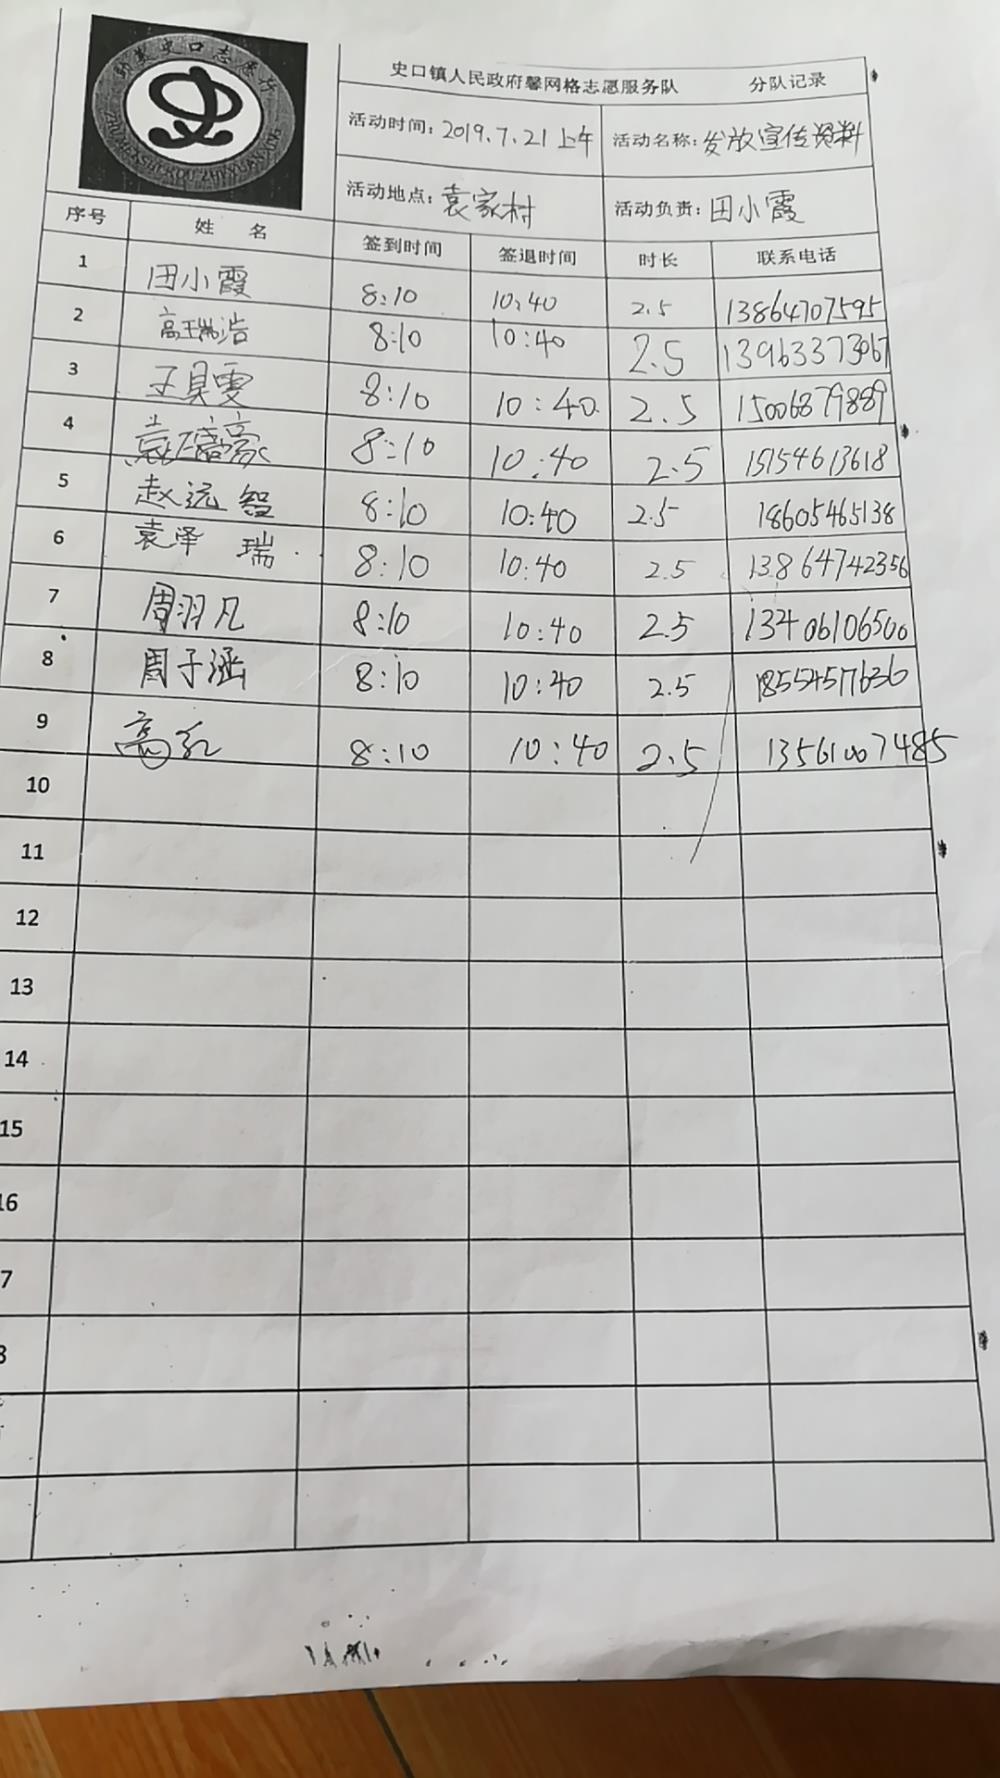 史口镇人民政府馨网格志愿服务队 分队记录
活动时间：2019.7.21上午 活动名称：发放宣传资料
活动地点：袁家村 活动负责：田小霞
序号 姓名 签到时间 签退时间 时长 联系电话
1 田小霞 8:10 10:40 2.5 13864707595
2 高瑞浩 8:10 10:40 2.5 13963373067
3 王貝雯 8:10 10:40 2.5 15006879889
4 8:10 10:40 2.5 15154613618
5 赵远智 8:10 10:40 2.5 18605465138
6 袁泽瑞 8:10 10:40 2.5 13864742356
7 周羽凡 8:10 10:40 2.5 13406106500
8 周子涵 8:10 10:40 2.5 18554517636
9 高红 8:10 10:40 2.5 13561007485
10
11
12
13
14
15
16
7